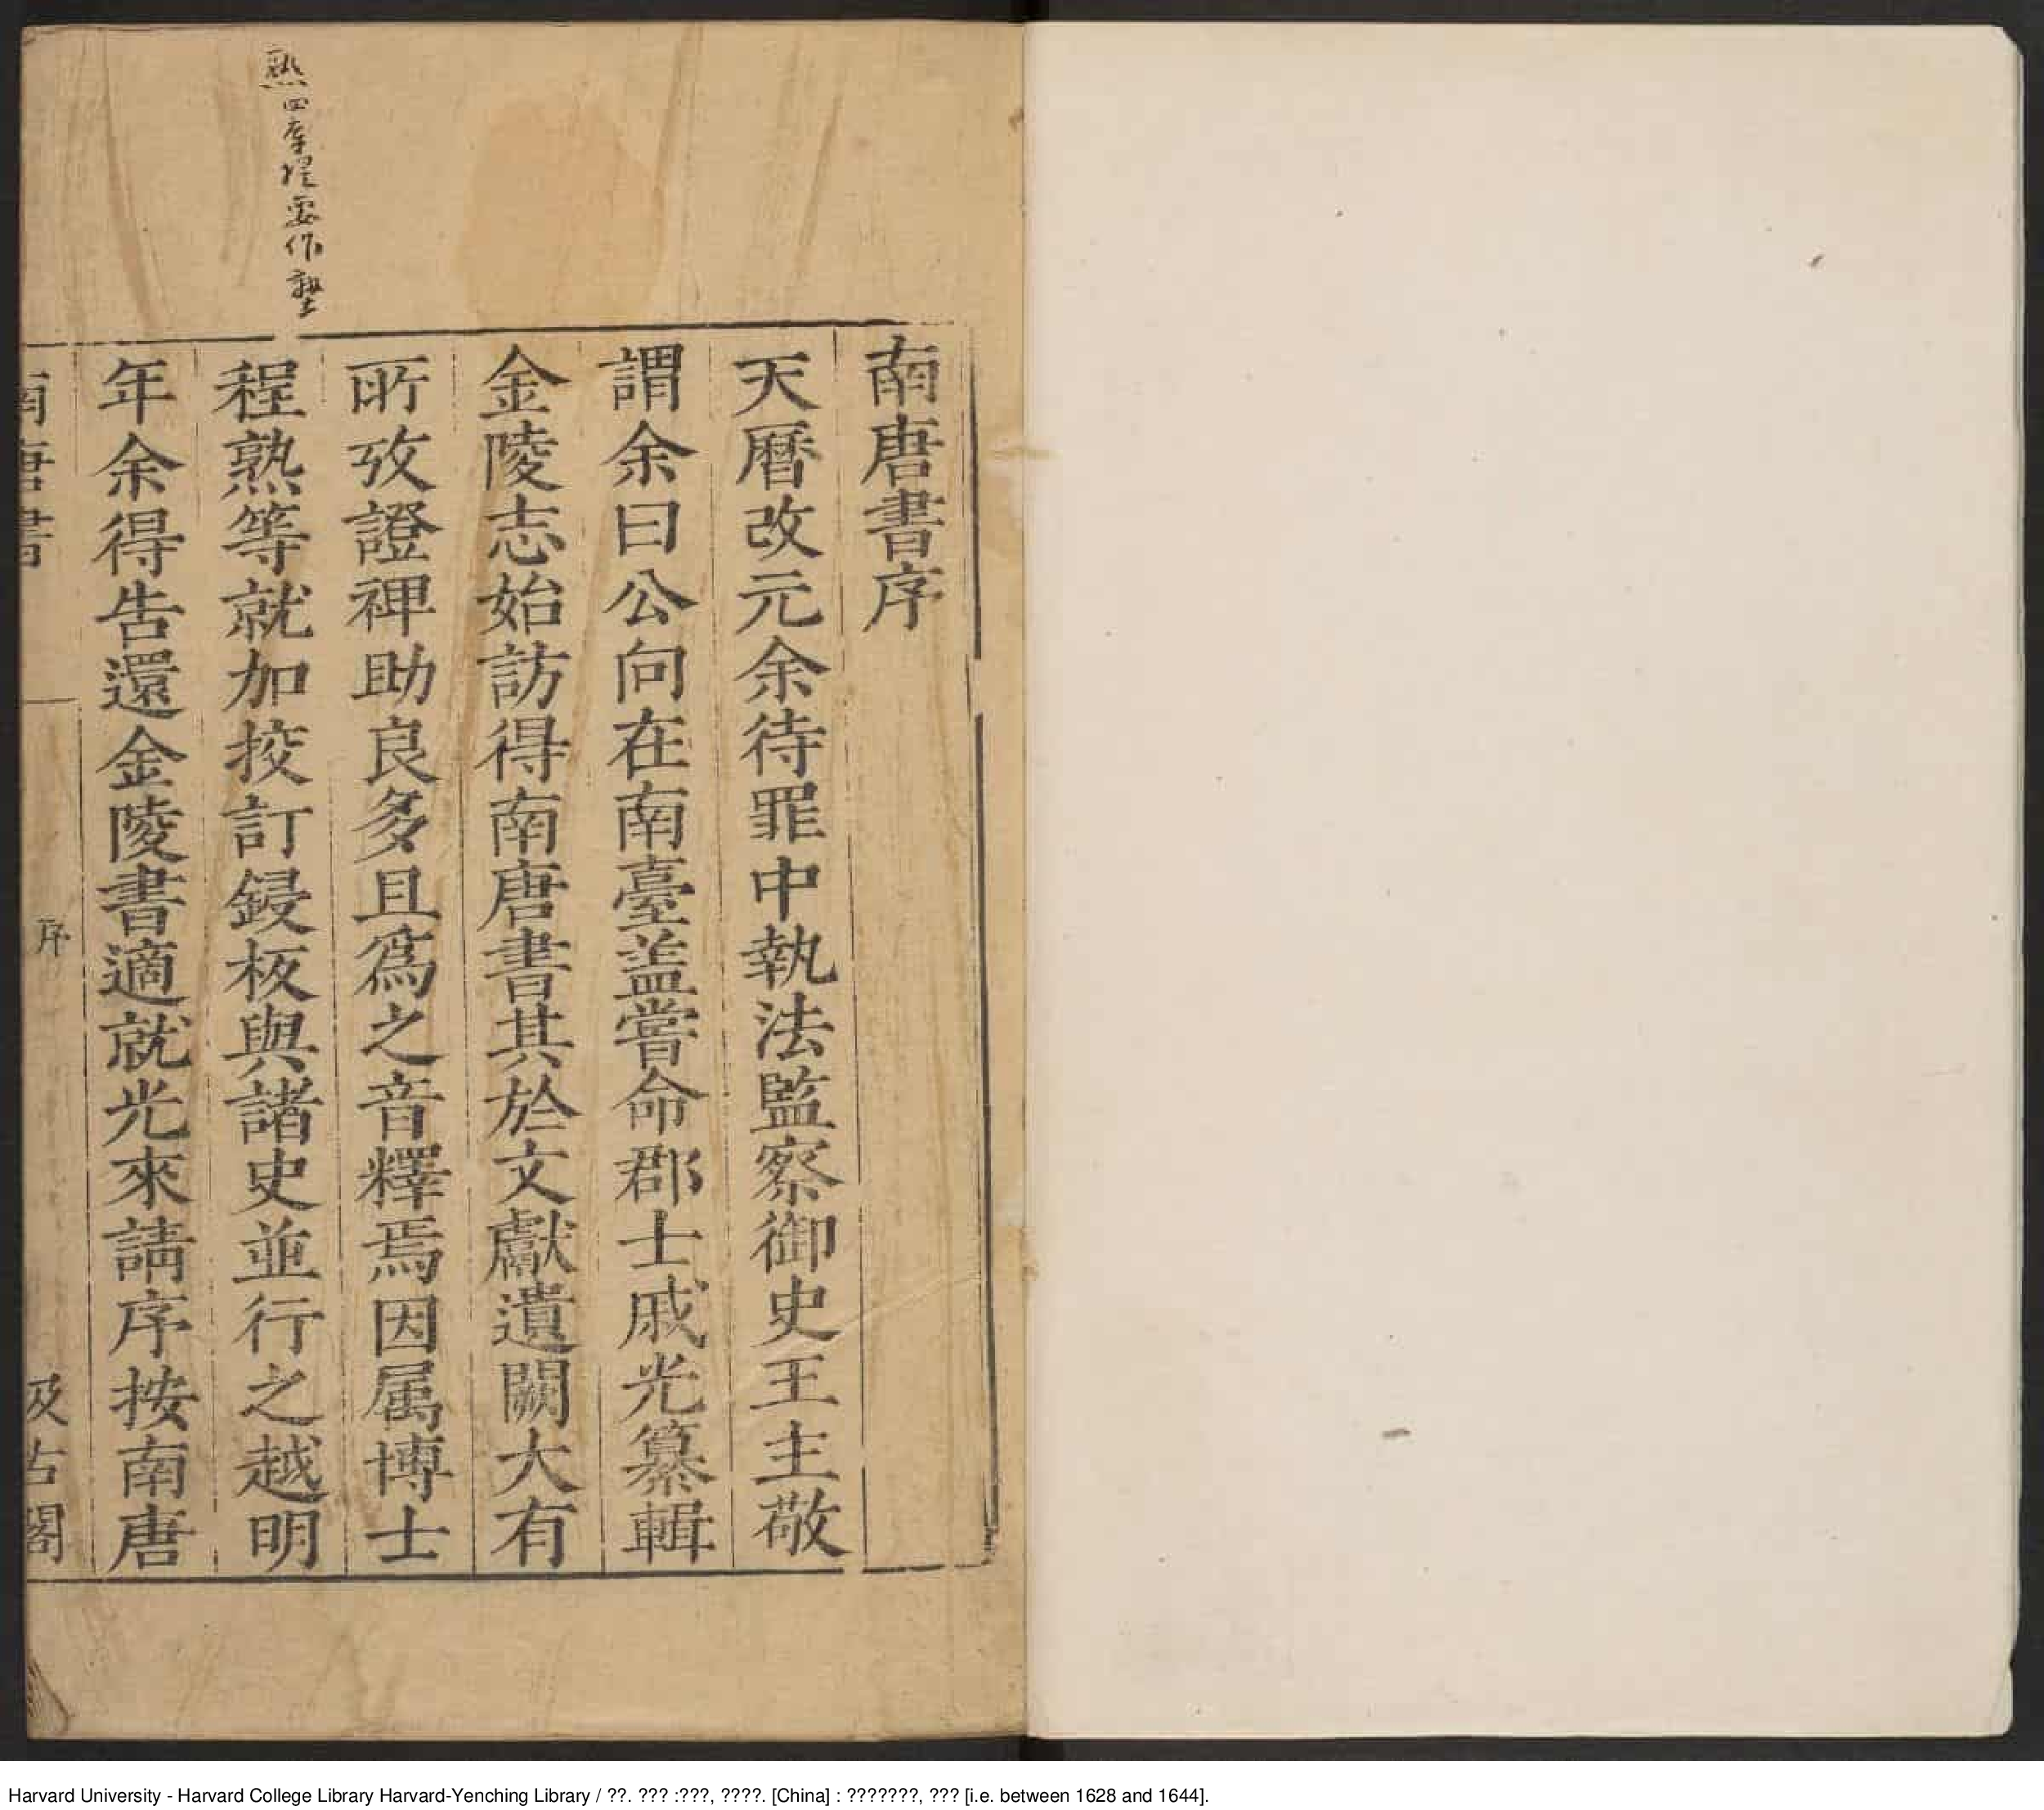 南唐書序
天曆改元余待罪中執法監察御史王主敬
謂余曰公向在南臺盖嘗命郡士戚光纂輯
金陵志始訪得南唐書其於文獻遺闕大有
所攷證裨助良多且爲之音釋焉因属博士
程熟等就加挍訂鋟板與諸史並行之越明
年余得告還金陵書適就光來請序按南唐
熟四庫提要作塾
南唐書
序
汲古閣
Harvard University - Harvard College Library Harvard-Yenching Library / ??. ??? :???, ????. [China] : ???????, ??? [i.e. between 1628 and 1644].